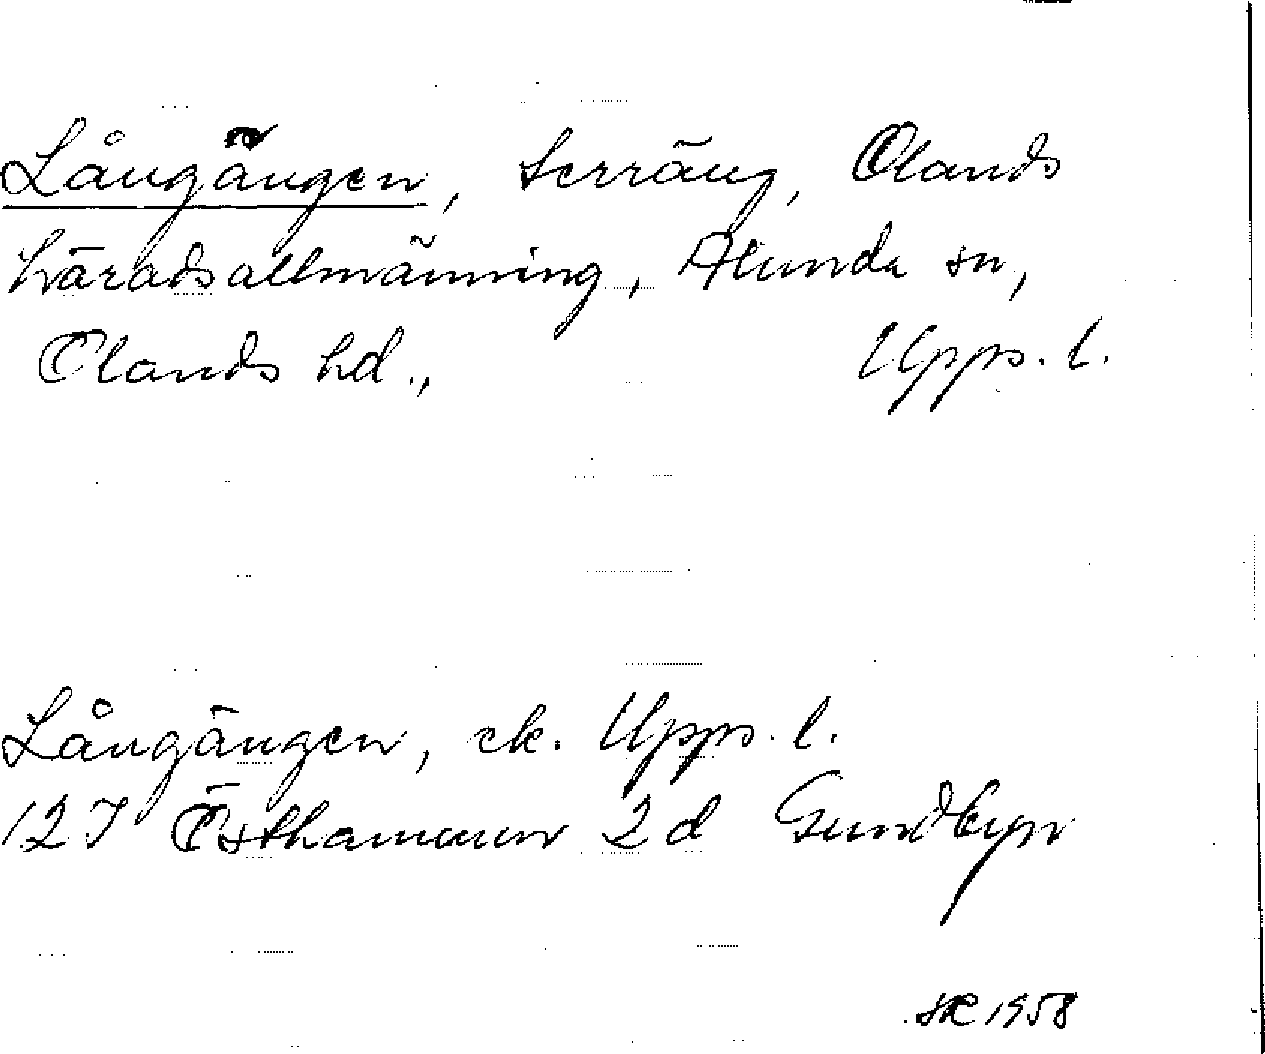 Långängen, terräng, Olands
häradsallmänning, Alunda sn,
Olands hd.,  Upps. l.
Långängen, ek. Upps. l.
12I Östhammar 2d Gundbyn
1958